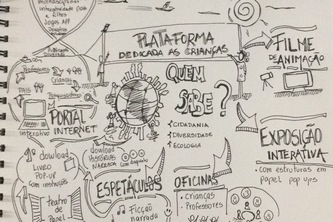 PLATAFORMA
DEDICADA ÀS CRIANÇAS
FILME
DE ANIMAÇÃO
QUEM
SABE?
CIDADANIA
DIVERSIDADE
ECOLOGIA
PAIS
PORTAL
INTERNET
interativo
EXPOSIÇÃO
INTERATIVA
com estruturas em
papel pop ups
download
LIVRO
POP-UP
com instruções
download
HISTÓRIAS
NARRADA
ESPETÁCULOS
Teatro
de
Papel
Ficção
Narrada
OFICINAS
Crianças
Professores